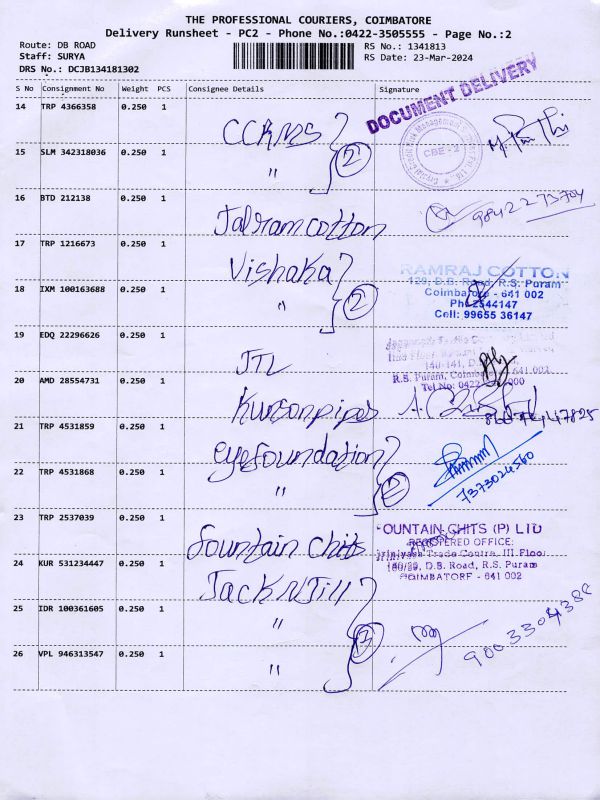 THE PROFESSIONAL COURIERS, COIMBATORE
Delivery Runsheet - PC2 - Phone No.:0422-3505555 - Page No.:2
Route: DB ROAD
RS No.: 1341813
Staff: SURYA
RS Date: 23-Mar-2024
DRS No.: DCJB134181302
S No Consignment No Weight PCS Consignee Details Signature
DOCUMENT DELIVERY
14 TRP 4366358 0.250 1
CCRMS
CBE - 2
15 SLM 342318036 0.250 1
" 2
16 BTD 212138 0.250 1
Jalram cotton
98422 73704
17 TRP 1216673 0.250 1
Vishaka
RAMRAJ COTTON
129, D.B. Road, R.S. Puram
Coimbatore - 641 002
Ph: 2544147
Cell: 99655 36147
18 IXM 100163688 0.250 1
" 2
19 EDQ 22296626 0.250 1
JTL
140-141, D.B.
R.S. Puram, Coimbatore 641 002
Tel No: 0422
20 AMD 28554731 0.250 1
21 TRP 4531859 0.250 1
eyefoundation
7373024560
22 TRP 4531868 0.250 1
" 2
23 TRP 2537039 0.250 1
fountain chits
OUNTAIN CHITS (P) LTD
REGISTERED OFFICE:
Trade Centre, III Floo
D.B. Road, R.S. Puram
COIMBATORE - 641 002
24 KUR 531234447 0.250 1
Jack N Jill
25 IDR 100361605 0.250 1
" 3
26 VPL 946313547 0.250 1
"